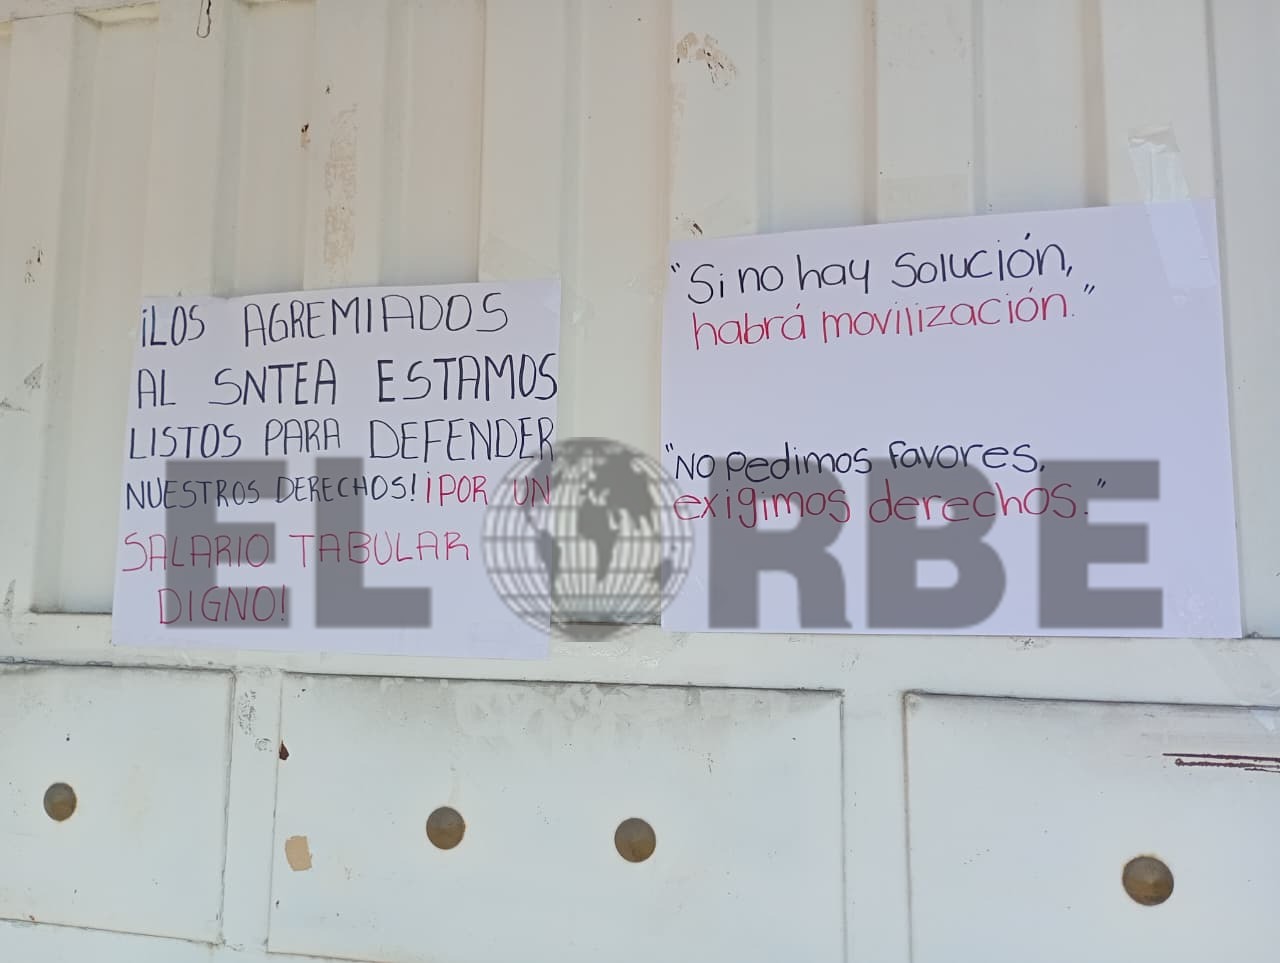 ¡LOS AGREMIADOS
AL SNTEA ESTAMOS
LISTOS PARA DEFENDER
NUESTROS DERECHOS! ¡POR UN
SALARIO TABULAR
DIGNO!
"Si no hay Solución,
habrá movilización."
"No pedimos favores,
exigimos derechos."
EL ORBE